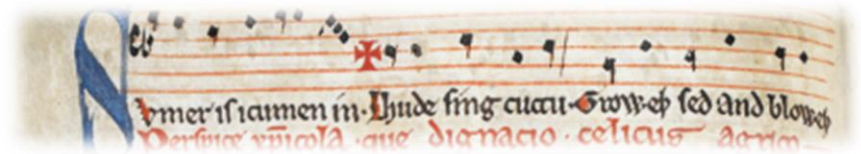 Svmer is icumen in· Lhude sing cuccu· Groweþ sed and bloweþ
Perspice xp̅icola· que dignacio· celicus agrico